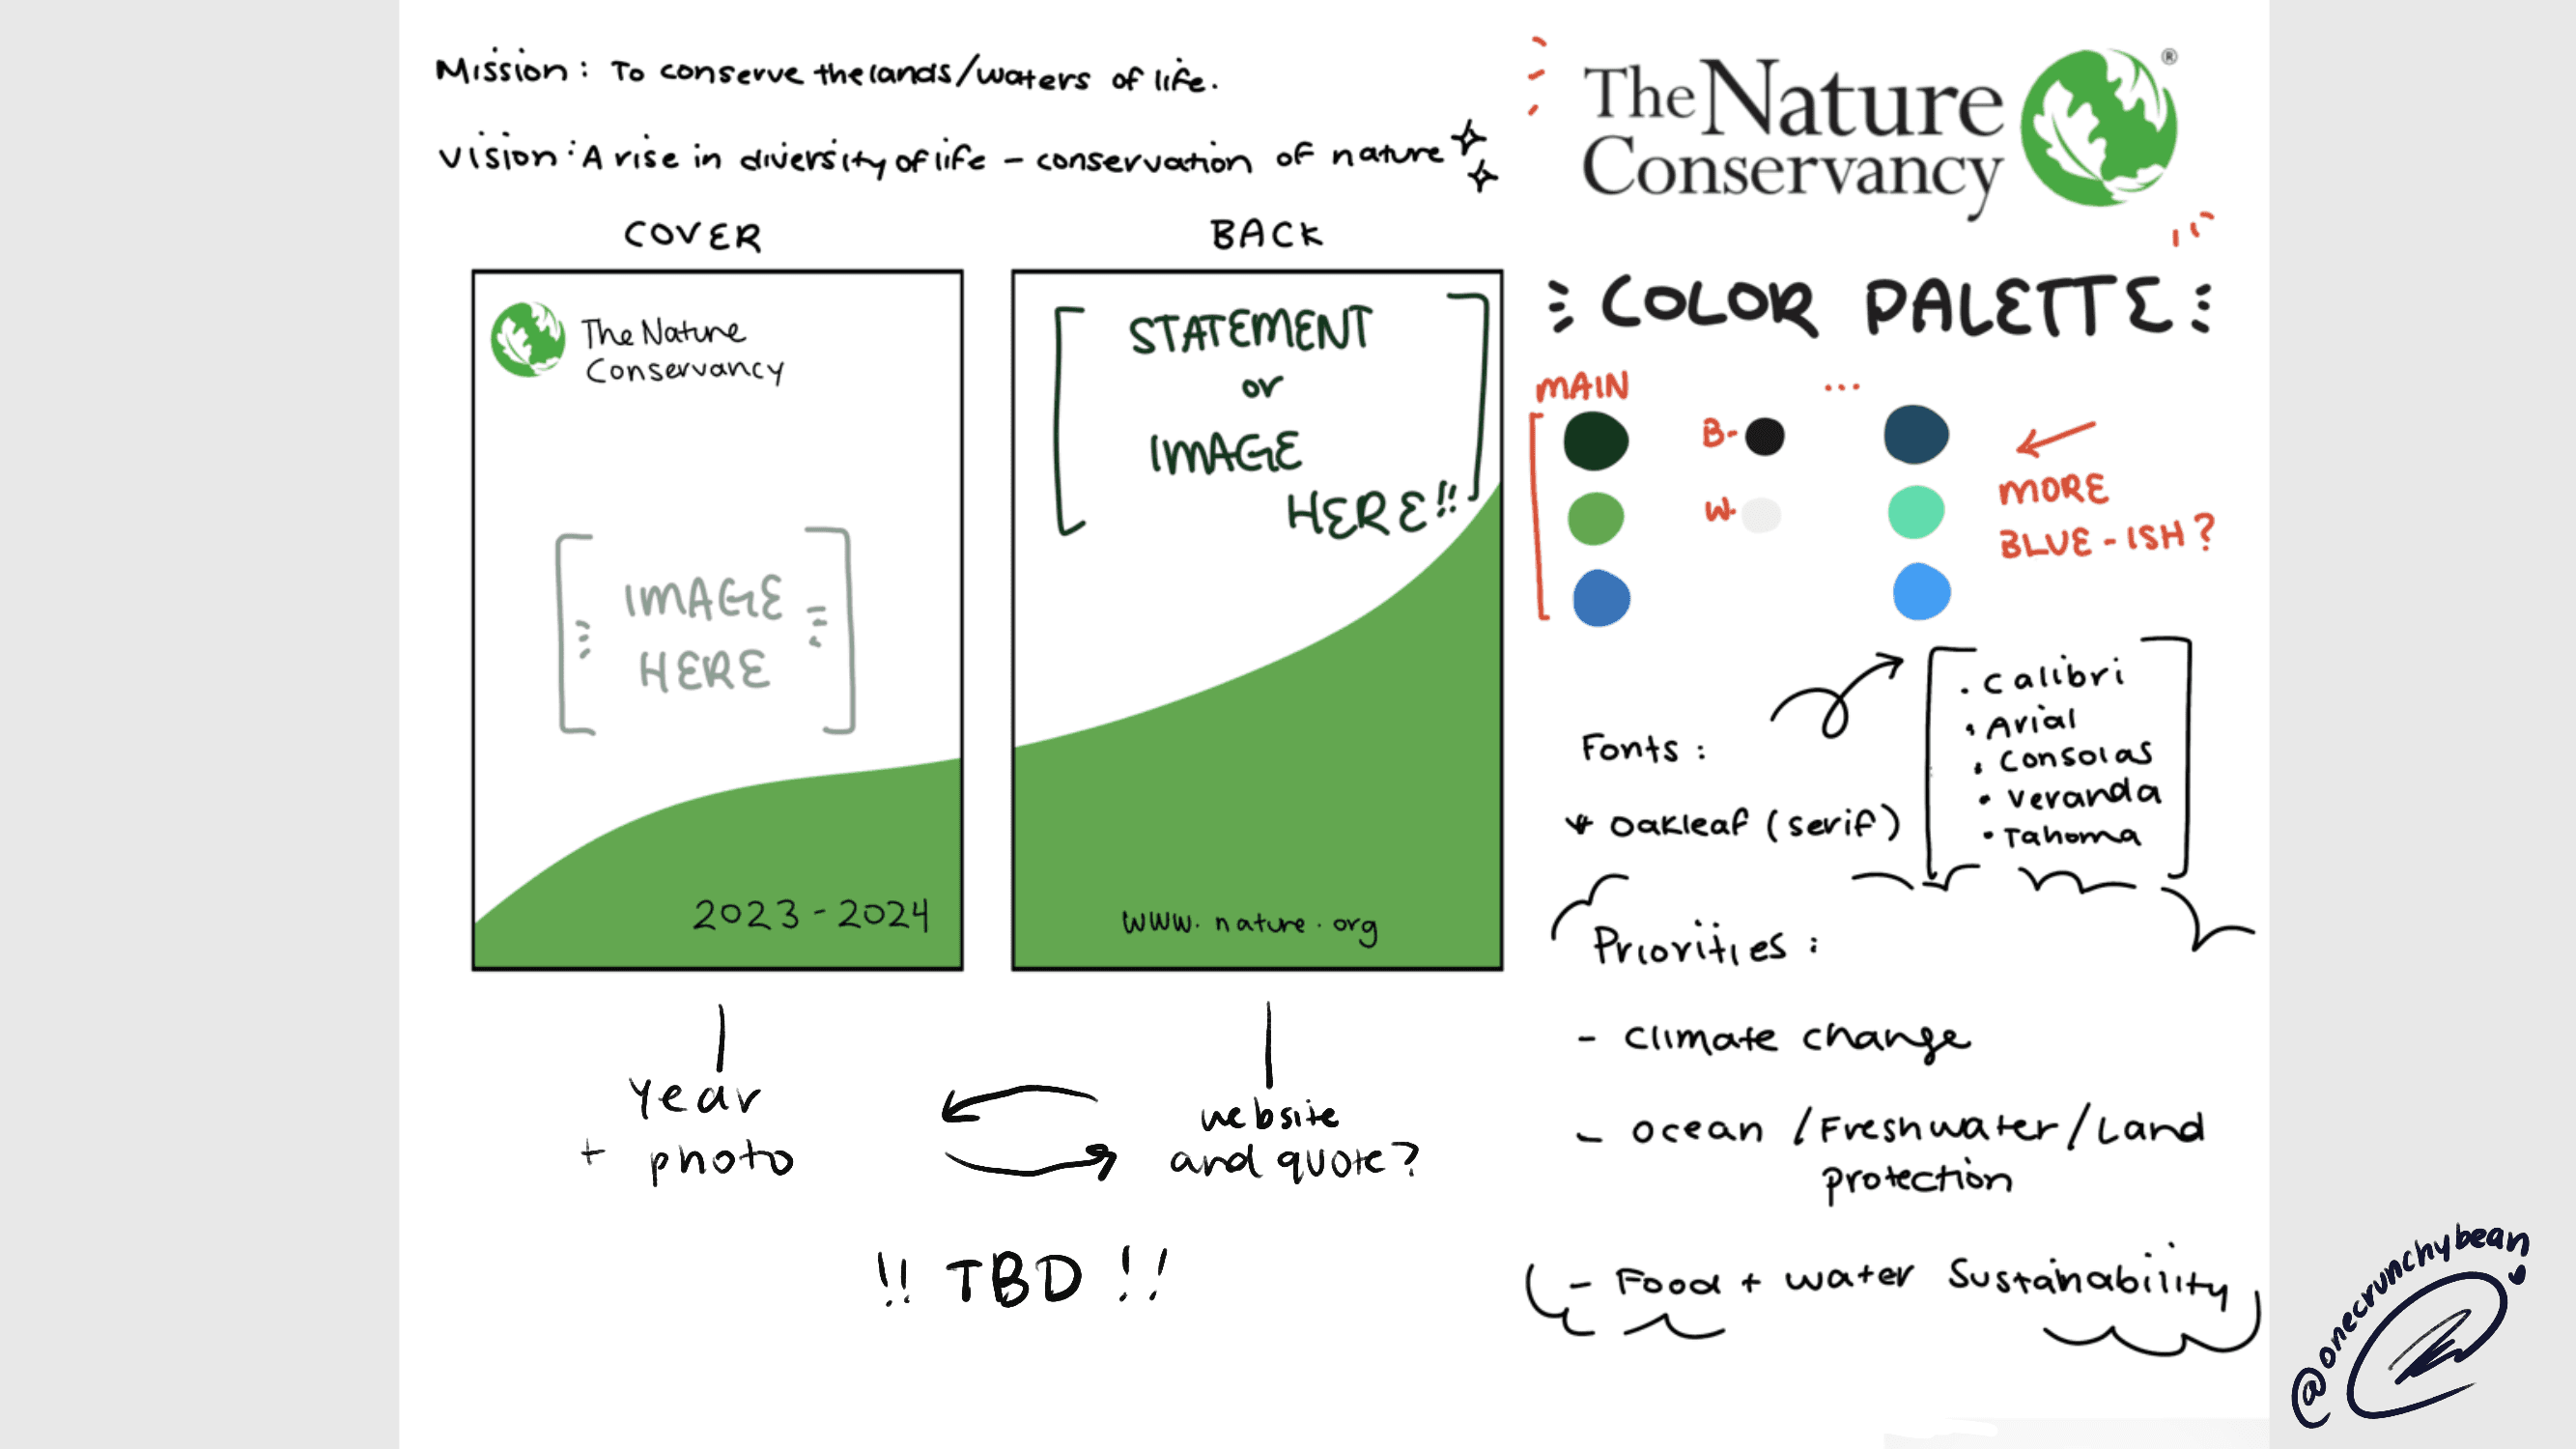 Mission: To conserve the lands/waters of life.
Vision: A rise in diversity of life - conservation of nature
The Nature
Conservancy
®
COVER
BACK
The Nature
Conservancy
IMAGE
HERE
2023-2024
STATEMENT
or
IMAGE
HERE!!
www.nature.org
year
+ photo
website
and quote?
!! TBD !!
COLOR PALETTE
MAIN
...
B-
W-
MORE
BLUE-ISH?
Fonts:
Oakleaf (serif)
. Calibri
. Arial
. Consolas
. Veranda
. Tahoma
Priorities:
- Climate change
- Ocean/Freshwater/Land
protection
- Food + water Sustainability
@onecrunchybean